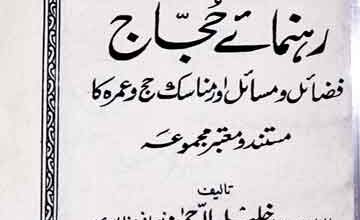 رہنمائے حُجّاج
فضائل و مسائل اور مناسک حج و عمرہ کا
مستند و معتبر مجموعہ
تالیف